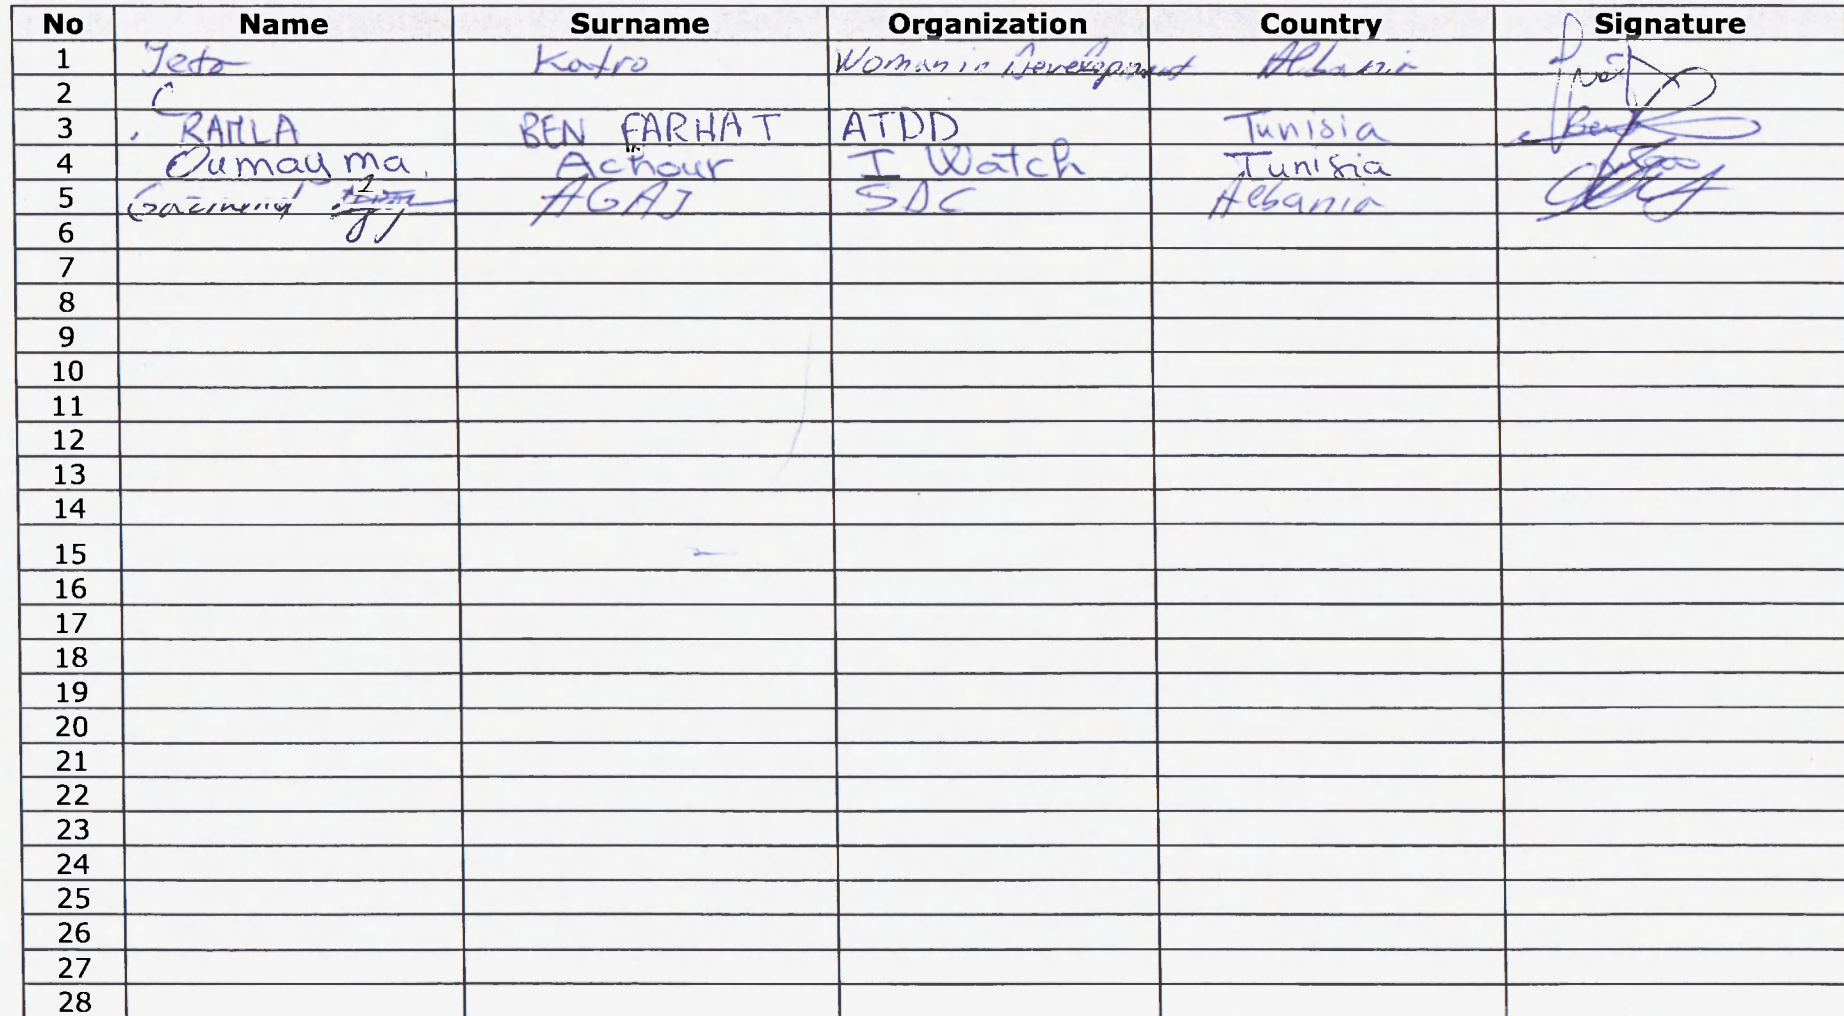 No Name Surname Organization Country Signature
1 Jeta Katro Woman in Development Albania
2
3 RAMLA BEN FARHAT ATDD Tunisia
4 Oumayma Achour I Watch Tunisia
5 AGAJ SDC Albania
6
7
8
9
10
11
12
13
14
15
16
17
18
19
20
21
22
23
24
25
26
27
28